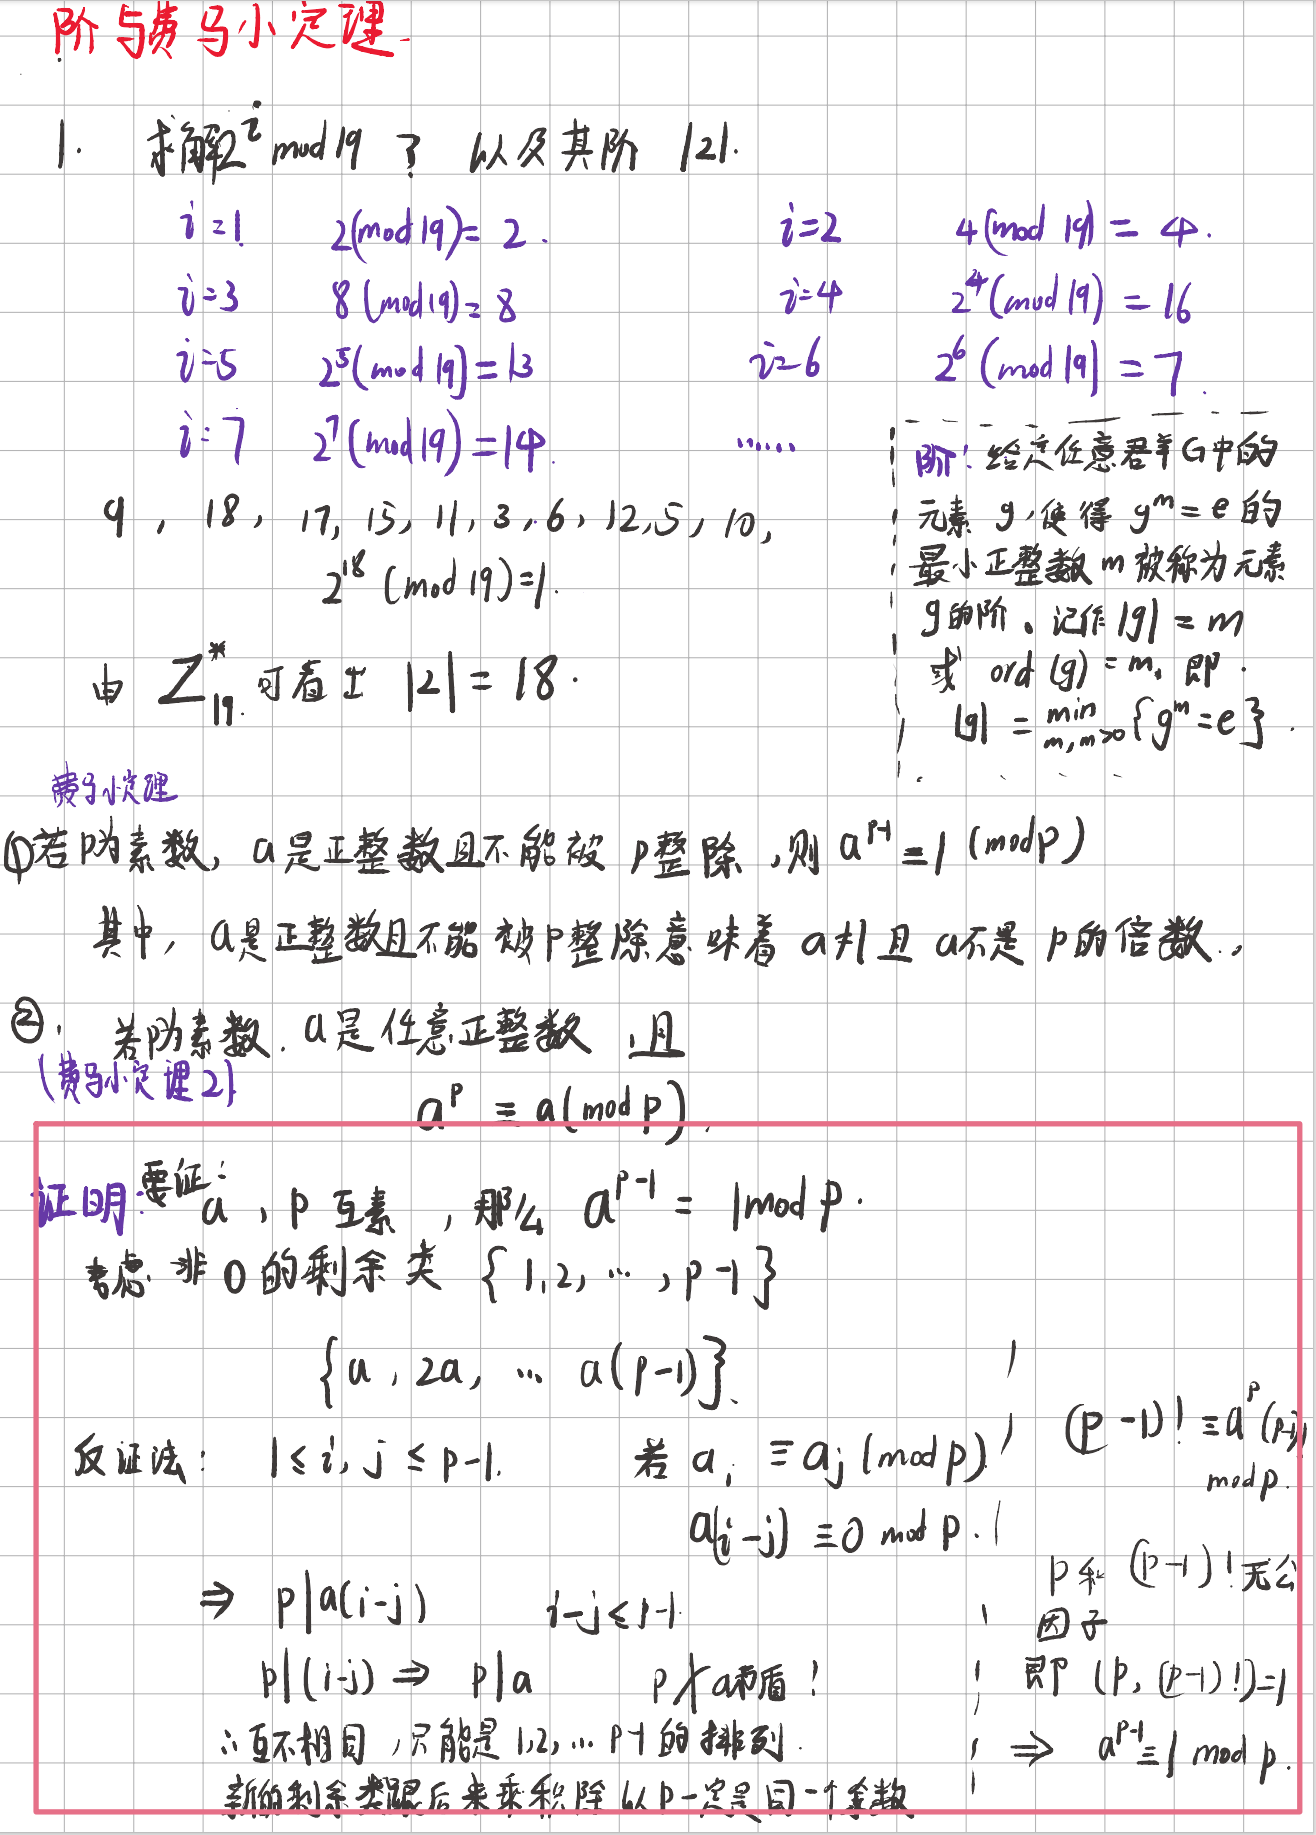 阶与费马小定理.
1. 求解2^i mod 19 ? 以及其阶 |2|.
i=1 2(mod 19)= 2. i=2 4(mod 19) = 4.
i=3 8(mod 19)= 8 i=4 2^4(mod 19) = 16
i=5 2^5(mod 19)=13 i=6 2^6(mod 19) = 7.
i=7 2^7(mod 19)=14. ......
9, 18, 17, 15, 11, 3, 6, 12, 5, 10,
2^18 (mod 19)=1.
由 Z*_19 可看出 |2| = 18.
阶: 给定任意群G中的
元素 g, 使得 g^m = e 的
最小正整数 m 被称为元素
g的阶。记作 |g| = m
或 ord(g) = m, 即.
|g| = min_{m, m>0} {g^m = e}.
费马小定理
① 若p为素数, a是正整数且不能被 p整除, 则 a^{p-1} ≡ 1 (mod p)
其中, a是正整数且不能被p整除意味着 a≠1 且 a不是 p的倍数.,
②. 若p为素数. a是任意正整数, 且
(费马小定理2)
a^p ≡ a(mod p),
证明: 要证:
a, p 互素, 那么 a^{p-1} = 1 mod p.
考虑 非0的剩余类 {1,2, …, p-1}
{a, 2a, … a(p-1)}.
反证法: 1≤i, j≤p-1. 若 a_i ≡ a_j (mod p)
a(i-j) ≡0 mod p.
⇒ p|a(i-j) i-j≤p-1
p|(i-j) ⇒ p|a p∤a矛盾!
∴互不相同, 只能是1,2,… p-1 的排列.
新的剩余类跟后来乘积除以p一定是同一个余数
(p-1)! ≡ a^p (p-1)!
mod p.
p和 (p-1)! 无公
因子
即 (p, (p-1)!)=1
⇒ a^{p-1} ≡ 1 mod p.